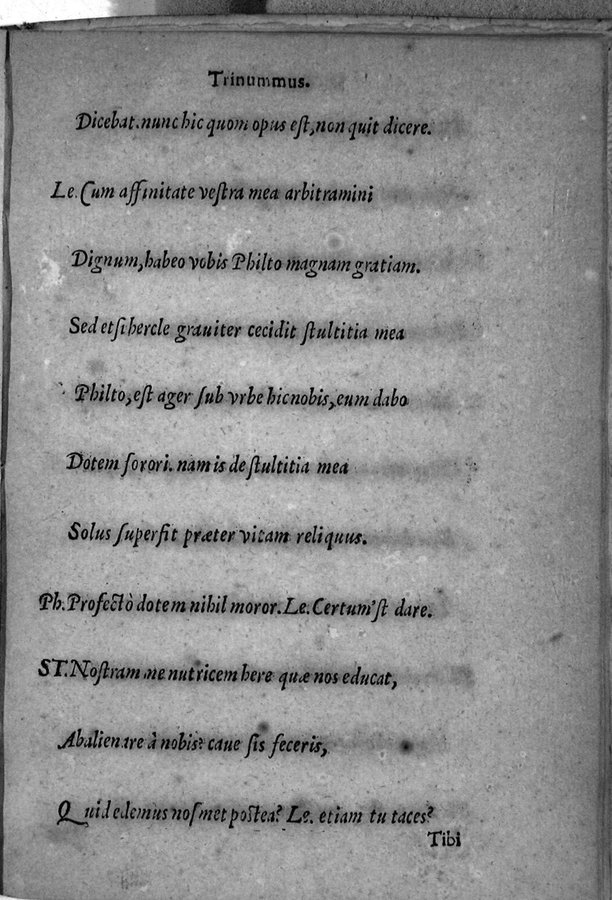 Trinummus.
Dicebat. nunc hic quom opus eſt, non quit dicere.
Le. Cum affinitate veſtra mea arbitramini
Dignum, habeo vobis Philto magnam gratiam.
Sed etſi hercle grauiter cecidit ſtultitia mea
Philto, eſt ager ſub vrbe hic nobis, eum dabo
Dotem ſorori. nam is de ſtultitia mea
Solus ſuperfit præter vitam reliquus.
Ph. Profectò dotem nihil moror. Le. Certum'ſt dare.
ST. Noſtram ne nutricem here quæ nos educat,
Abalienare à nobis? caue ſis feceris,
Quid edemus noſmet poſtea? Le. etiam tu taces?
Tibi